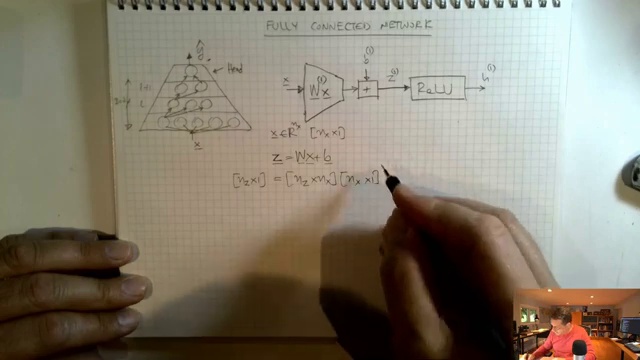 FULLY CONNECTED NETWORK
ŷ
Head
L+1
L
x
x
W^(1) x
b^(1)
+
z^(1)
ReLU
h^(1)
x ∈ R^{n_x} [n_x × 1]
z = Wx + b
[n_z × 1] = [n_z × n_x] [n_x × 1]